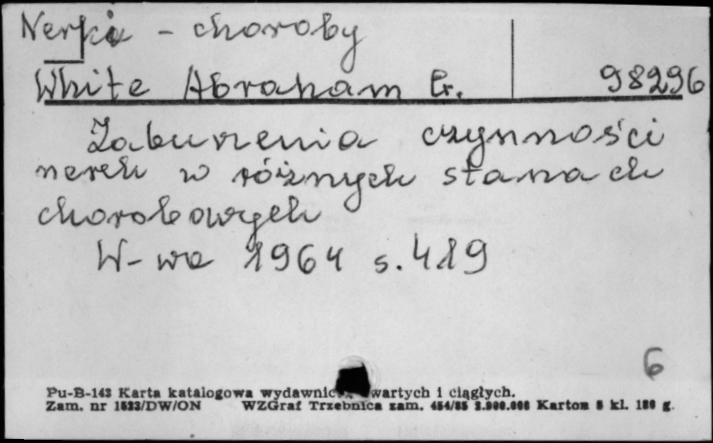 Nerki - choroby
White Abraham G. 98296
Zaburzenia czynności
nerek w różnych stanach
chorobowych
W-wa 1964 s. 419
6
Pu-B-143 Karta katalogowa wydawnictw zwartych i ciągłych.
Zam. nr 1523/DW/ON WZGraf Trzebnica zam. 454/85 2.000.000 Karton 5 kl. 180 g.